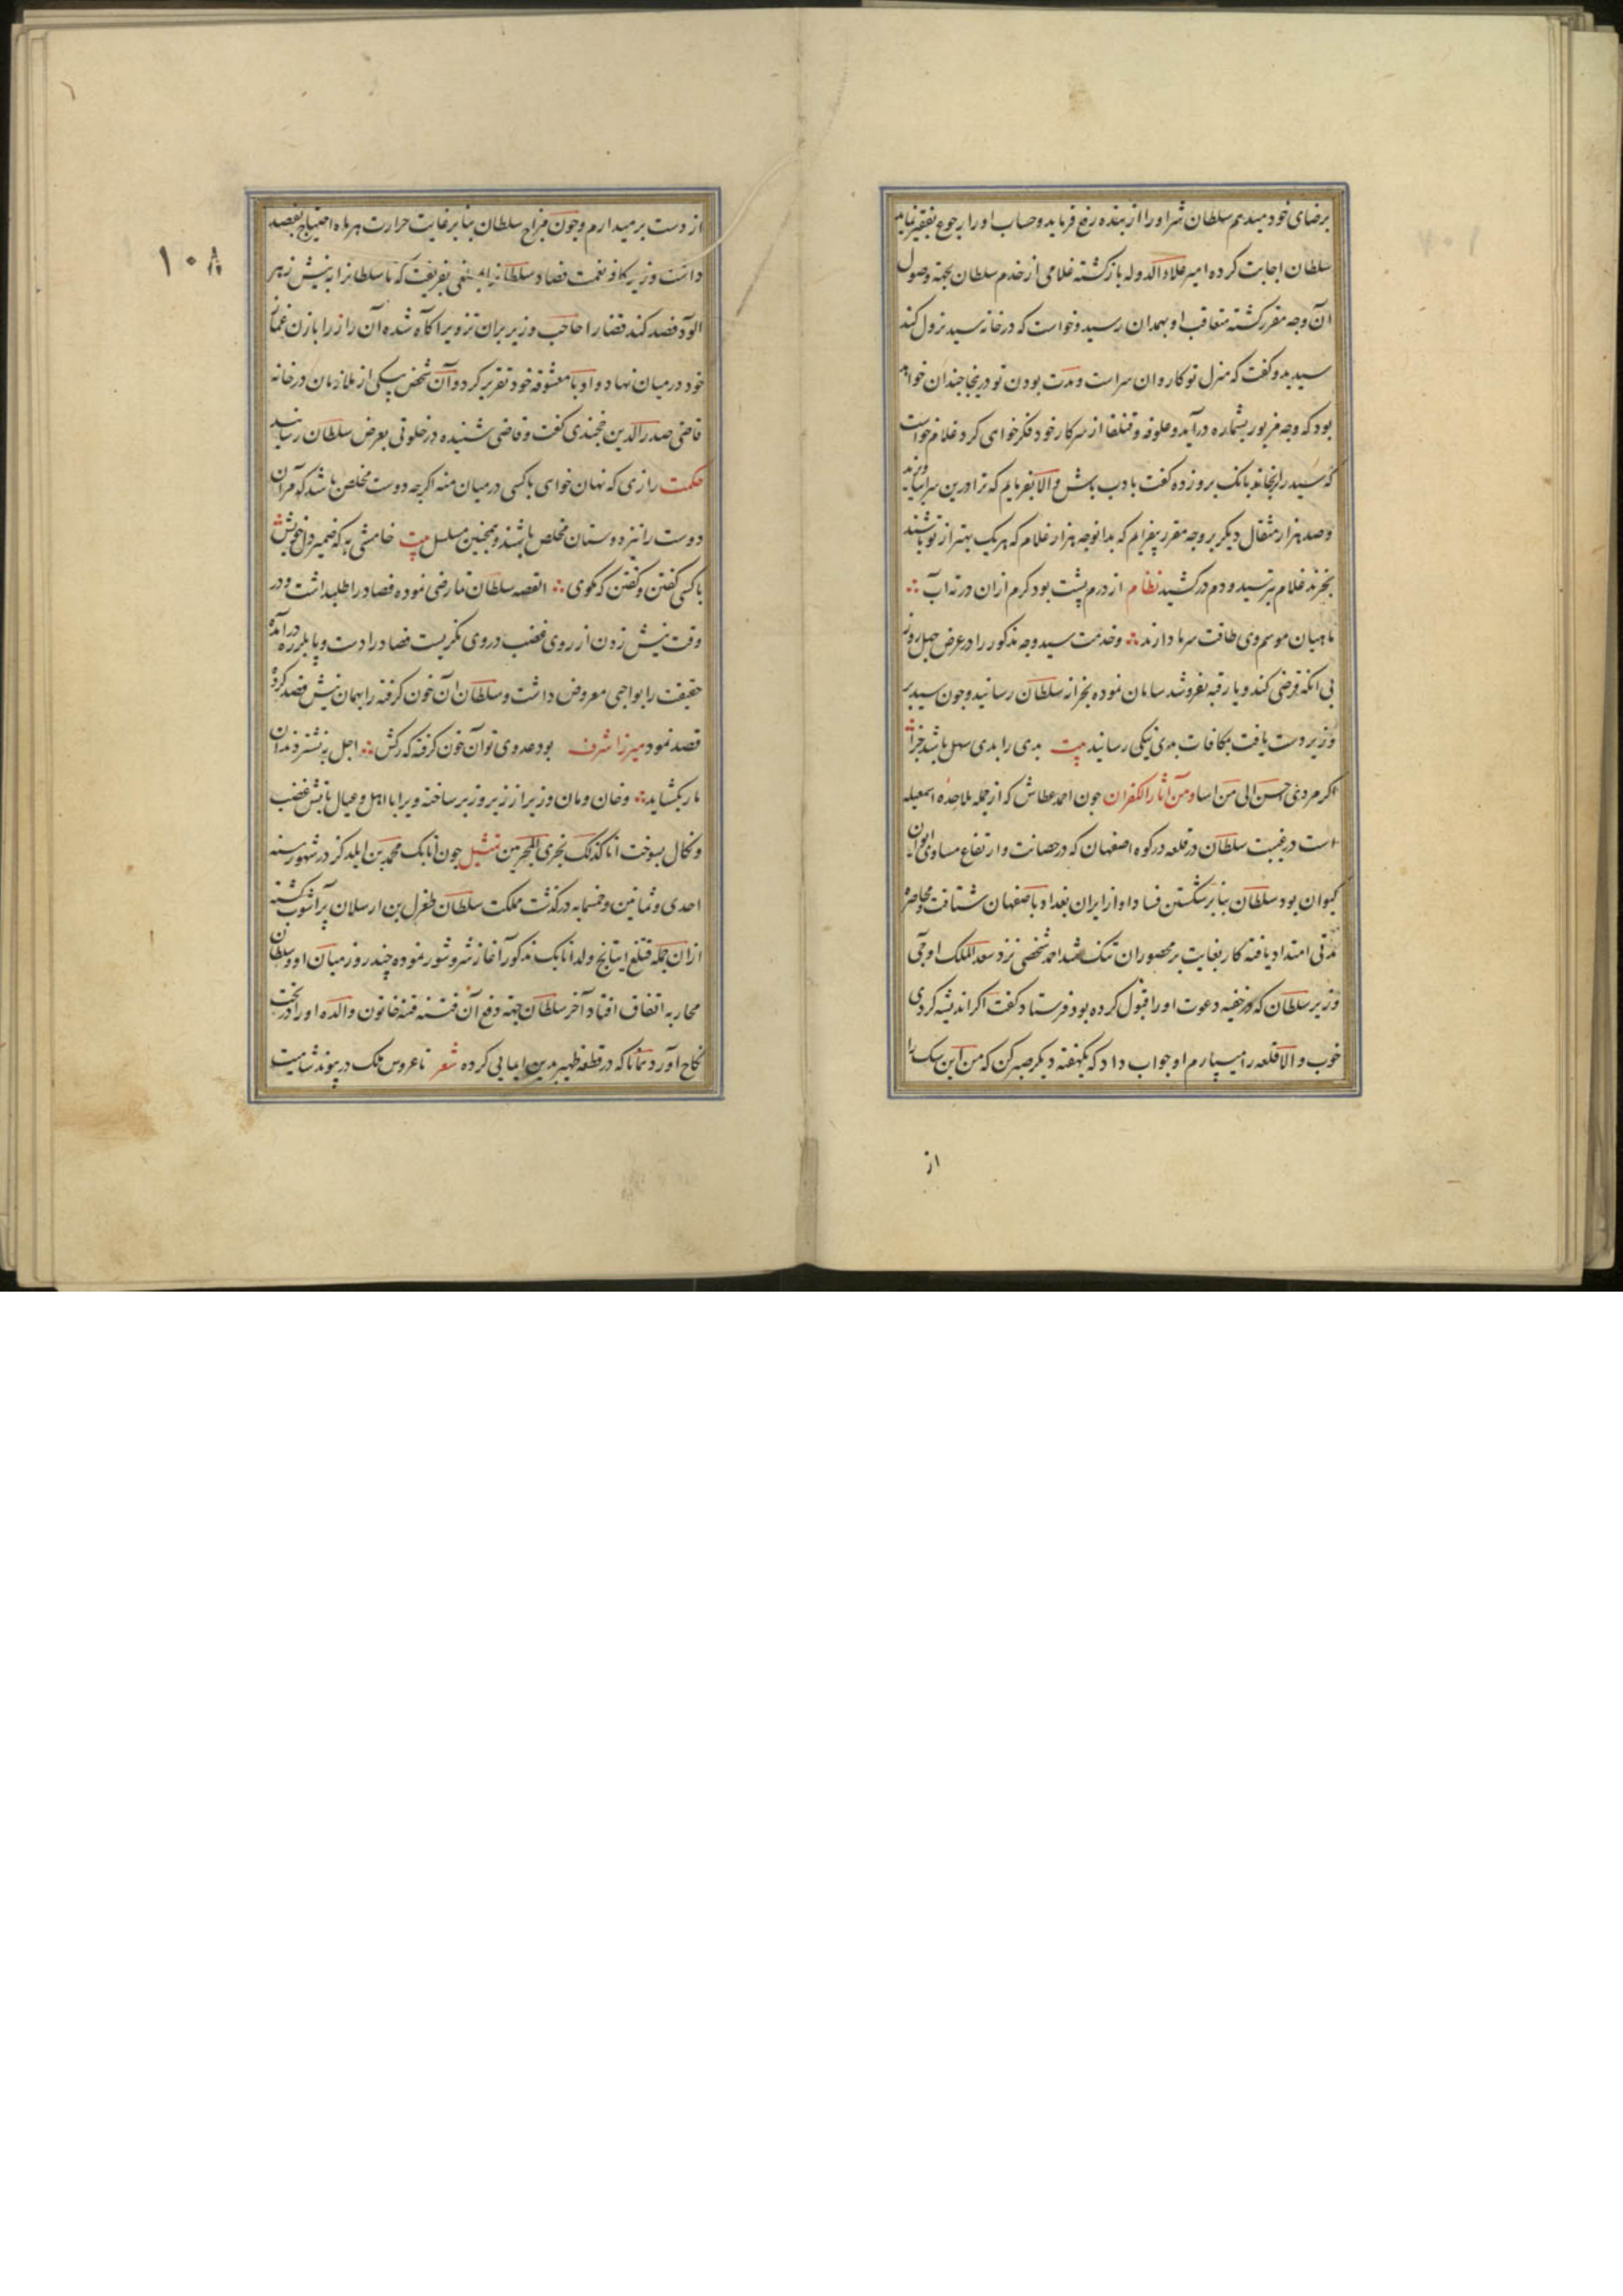 برضای خود میدهم سلطان شر او را از بنده رفع فرماید و حساب او را رجوع بفقیر نماید
سلطان اجابت کرده امیر علاء الدوله بازگشته غلامی از خدم سلطان بجهة وصول
آن وجه مقرر گشته متعاقب او بهمدان رسید و خواست که در خانه سید نزول کند
سید بدو گفت که منزل تو کاروان سراست و مدت بودن تو درینجا چندان خواهد
بود که وجه مزبور بشماره درآید و علوفه و قنلغا از سرکار خود فکر خواهی کرد غلام خواست
که سید را برنجاند بانک برو زده گفت با ادب باش و الا بفرمایم که ترا درین سرا بیاویزند
و صد هزار مثقال دیگر بر وجه مقرر بیفزایم که بدانوجه هزار غلام که هر یک بهتر از تو باشند
بخرند غلام بترسید و دم در کشید نظام از درم پشت بود گرم ازان در ته آب
ماهیان موسم وی طاقت سرما دارند و خدمت سید وجه مذکور را در عرض چهل روز
بی آنکه قرضی کند و یا رقبه بفروشد سامان نموده بخزانه سلطان رسانید و چون سید بر
وزیر دست یافت مکافات بدی نیکی رسانید بیت بدی را بدی سهل باشد جزا
اگر مردی احسن الی من اسا و من آثار الکفران چون احمد عطاش که از جمله ملاحده اسمعیله
است در غیبت سلطان در قلعه در کوه اصفهان که در حصانت و ارتفاع مساوی ایوان
کیوان بود سلطان بنا بر شکستن فساد او از ایران بغداد باصفهان شتافت و محاصره
مدتی امتداد یافته کار بغایت بر محصوران تنک شد احمد شخصی نزد سعد الملک اوجی
وزیر سلطان که در خفیه دعوت او را قبول کرده بود فرستاد گفت اگر اندیشه کردی
خوب و الا قلعه را میسپارم او جواب داد که یکهفته دیگر صبر کن که من این سک را
از
۱۰۸
از دست بر میدارم و چون مزاج سلطان بنا بر غایت حرارت هر ماه احتیاج بفصد
داشت وزیر کافر نعمت فصاد سلطانرا بمبلغی بفریفت که تا سلطانرا به نیش زهر
آلود فصد کند قضا را حاجب وزیر بران تزویر آگاه شده آن راز را با زن غماز
خود در میان نهاد و او با معشوقه خود تقریر کرد و آن شخص بیکی از ملازمان در خانه
قاضی صدر الدین خجندی گفت و قاضی شنیده در خلوتی بعرض سلطان رسانید
حکمت رازی که نهان خواهی با کسی در میان منه اگرچه دوست مخلص باشد که مر آن
دوست را نیز دوستان مخلص باشند و همچنین مسلسل بیت خامشی به که ضمیر دل خویش
با کسی گفتن و گفتن که مگوی القصه سلطان تمارضی نموده فصاد را طلبداشت و در
وقت نیش زدن از روی غضب در وی نگریست فصاد را دست و پا بلرزه درآمده
حقیقت را بواجبی معروض داشت و سلطان آن خون گرفته را بهمان نیش فصد کرده
قصد نمود میرزا شرف بود عدوی توان خون گرفته که رگش اجل به نشتر دندان
مار بگشاید و خان و مان وزیر از زیر و زبر ساخته ویرا با اهل و عیال بآتش غضب
و نکال بسوخت انا کذلک نجزی المجرمین تمثیل چون اتابک محمد بن ایلدکز در شهور سنه
احدی و ثمانین و خمسمایه درگذشت مملکت سلطان طغرل بن ارسلان پر آشوب گشته
ازان جمله قتلغ اینانج ولد اتابک مذکور آغاز شر و شور نموده چند روز میان او و سلطان
محاربه اتفاق افتاد آخر سلطان جهة دفع آن فتنه فتنه خاتون والده او را در تخت
نکاح آورد همانا که در قطعه ظهیر بدین ایمایی کرده شعر تا عروس ملک در پیوند شامیت